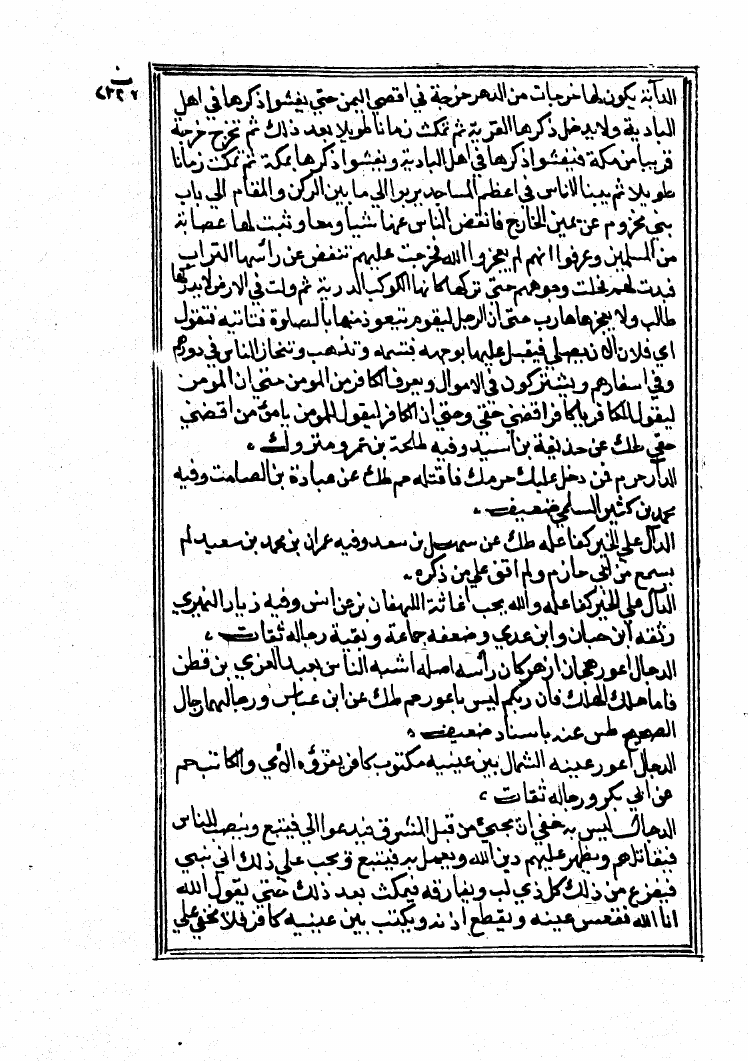 الدآبة يكون لها خرجات من الدهر خرجة في اقصى اليمن حتى يفشوا ذكرها في اهل
البادية ولا يدخل ذكرها القرية ثم تمكث زمانا طويلا بعد ذلك ثم تخرج خرجة
قريبا من مكة فيفشوا ذكرها في اهل البادية ويفشوا ذكرها بمكة ثم تمكث زمانا
طويلا ثم بينا الناس في اعظم المساجد الي ما بين الركن والمقام الي باب
بني مخزوم عن يمين الخارج فانفض الناس عنها شيا ومعا وثبت لها عصابة
من المسلمين وعرفوا انهم لم يعجزوا الله فخرجت عليهم تنفض عن رأسها التراب
فبدت لهم فجلت وجوههم حتى تركها كانها الكوكب الدرية ثم ولت في الارض لا يدركها
طالب ولا يعجزها هارب حتى ان الرجل ليقوم يتعوذ منها بالصلوة فتاتيه فتقول
اي فلان الان تصلي فيقبل عليها بوجهه فتسمه وتذهب وتتحاز الناس في دورهم
وفي اسفارهم ويشتركون في الاموال ويعرف الكافر من المومن حتى ان المومن
ليقول للكافر يا كافر اقضني حقي وحتى ان الكافر ليقول للمومن يا مؤمن اقضني
حقي طك عن حذيفة بن اسيد وفيه طلحة بن عمرو متروك .
الدار حرم فمن دخل عليك حرمك فاقتله حم طك عن عبادة بن الصامت وفيه
محمد بن كثير السلمي ضعيف .
الدال علي الخير كفاعله طك عن سهل بن سعد وفيه عمران بن محمد بن سعيد لم
يسمع من ابي حازم ولم اقف علي من ذكره .
الدال علي الخير كفاعله والله يحب اغاثة اللهفان بز عن انس وفيه زياد النميري
وثقه ابن حبان وابن عدي وضعفه جماعة وبقية رجاله ثقات ،
الدجال اعور هجان ازهر كان رأسه اصله اشبه الناس بعبد العزي بن قطن
فاما هلك الهلك فان ربكم ليس باعور حم طك عن ابن عباس ورجالهما رجال
الصحيح طس عنه باسناد ضعيف .
الدجال اعور عينه الشمال بين عينيه مكتوب كافر يقرؤه الامي والكاتب حم
عن ابي بكر ورجاله ثقات ،
الدجال ليس به خفي ان يجئ من قبل المشرق فيدعوا الي فيتبع وينصب للناس
فيقاتلهم ويظهر عليهم دين الله ويعمل به فيتبع ويحب علي ذلك اني نبي
فيفزع من ذلك كل ذي لب ويفارقه فيمكث بعد ذلك حتى يقول الله
انا الله فتغمس عينه ويقطع اذنه ويكتب بين عينيه كافر فلا يخفي علي